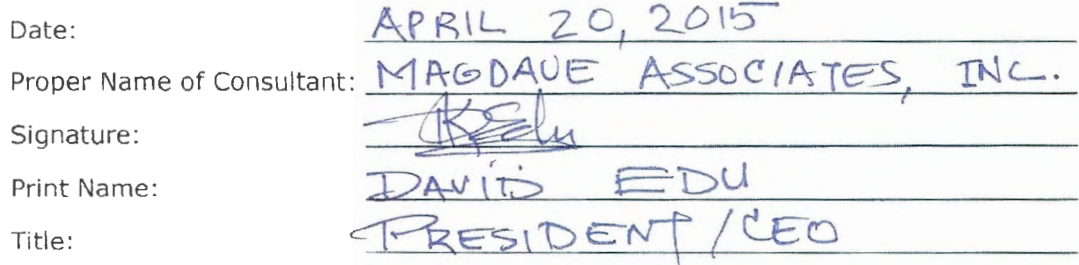 Date: APRIL 20, 2015
Proper Name of Consultant: MAGDAVE ASSOCIATES, INC.
Signature:
Print Name: DAVID EDU
Title: PRESIDENT/CEO